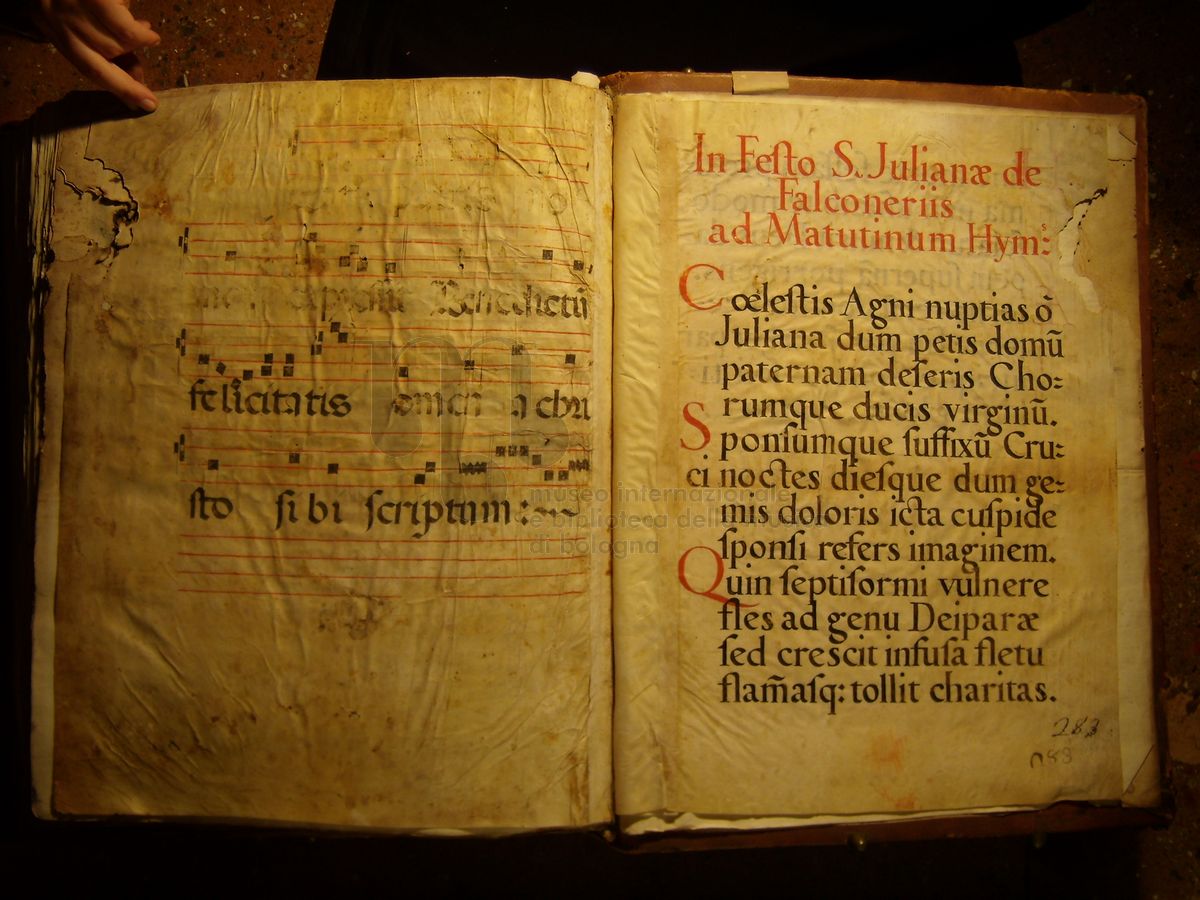 Benedictũ
felicitatis omen a chri
sto sibi scriptum:
In Feſto S. Julianæ de
Falconeriis
ad Matutinum Hym:ˢ
Cœleſtis Agni nuptias õ
Juliana dum petis domũ
paternam deſeris Cho=
rumque ducis virginũ.
Sponſumque ſuffixũ Cru=
ci noctes dieſque dum ge=
mis doloris icta cuſpide
ſponſi refers imaginem.
Quin ſeptiformi vulnere
fles ad genu Deiparæ
ſed crescit infuſa fletu
flam̃aſq: tollit charitas.
283
museo internazionale
e biblioteca della musica
di bologna